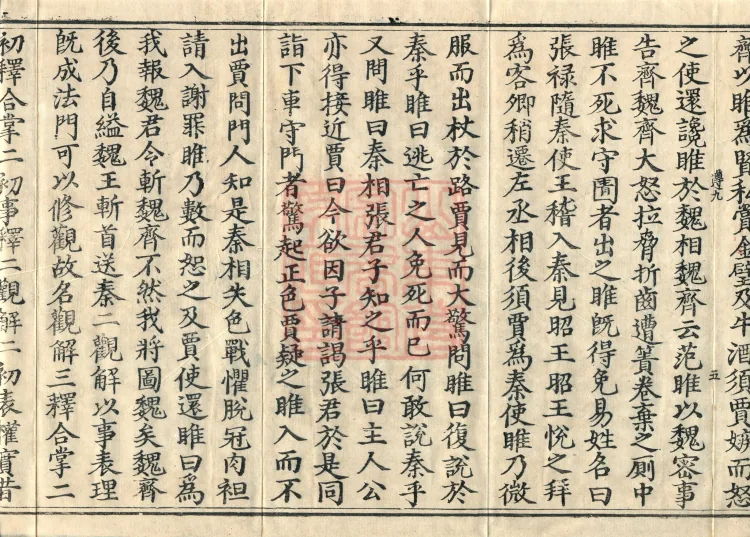 齊以睢爲賢私賞金璧及牛酒須賈嫉而怒
之使還讒睢於魏相魏齊云范睢以魏密事
告齊魏齊大怒拉脅折齒遭簀卷棄之厠中
睢不死求守圊者出之睢旣得免易姓名曰
張祿隨秦使王稽入秦見昭王昭王悅之拜
爲客卿稍遷左丞相後須賈爲秦使睢乃微
服而出杖於路賈見而大驚問睢曰復說於
秦乎睢曰逃亡之人免死而已何敢說秦乎
又問睢曰秦相張君子知之乎睢曰主人公
亦得接近賈曰今欲因子請謁張君於是同
詣下車守門者驚起正色賈疑之睢入而不
出賈問門人知是秦相失色戰懼脫冠肉袒
請入謝罪睢乃數而恕之及賈使還睢曰爲
我報魏君令斬魏齊不然我將圖魏矣魏齊
後乃自縊魏王斬首送秦二觀解以事表理
旣成法門可以修觀故名觀解三釋合掌二
初釋合掌二初事釋二觀解二初表權實昔
遵九
五